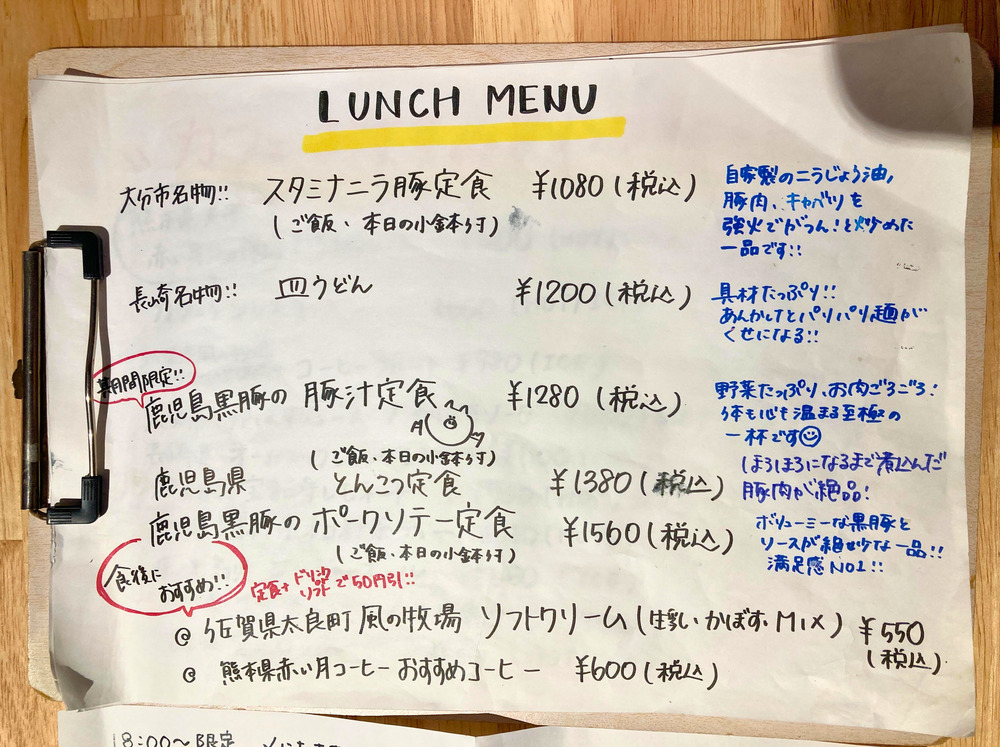 LUNCH MENU
大分市名物!! スタミナニラ豚定食 ¥1080(税込)
(ご飯、本日の小鉢付)
自家製のニラじょう油,
豚肉、キャベツを
強火でがつん!と炒めた
一品です!!
長崎名物!! 皿うどん ¥1200(税込)
具材たっぷり!!
あんかけとパリパリ麺が
くせになる!!
期間限定!!
鹿児島黒豚の 豚汁定食 ¥1280(税込)
(ご飯、本日の小鉢付)
野菜たっぷり、お肉ごろごろ!
体も心も温まる至極の
一杯です
鹿児島県 とんこつ定食 ¥1380(税込)
ほろほろになるまで煮込んだ
豚肉が絶品!
鹿児島黒豚の ポークソテー定食 ¥1560(税込)
(ご飯、本日の小鉢付)
ボリューミーな黒豚と
ソースが絶妙な一品!!
満足感NO1!!
食後に
おすすめ!!
定食+ドリンク
ソフトで50円引!!
佐賀県太良町 風の牧場 ソフトクリーム(生乳・かぼす・Mix) ¥550
(税込)
熊本県赤い月コーヒー おすすめコーヒー ¥600(税込)
18:00〜限定